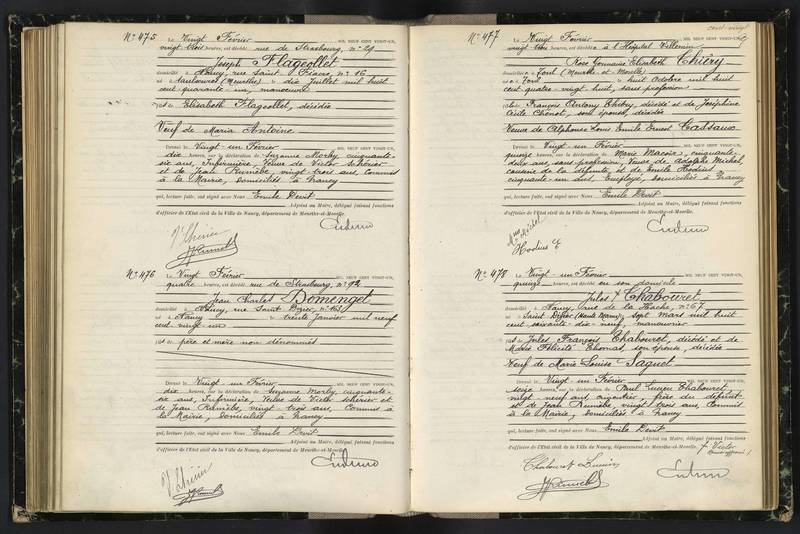 N° 475
Le Vingt Février MIL NEUF CENT VINGT-UN,
vingt trois heures, est décédé rue de Strasbourg, n° 29
Joseph Flageollet
domicilié à Nancy, rue Saint Fiacre, n° 16
né à (Meurthe) le dix Juillet mil huit
cent quarante un, manoeuvre
fils de Elisabeth Flageollet, décédée
Veuf de Maria Antoine
Dressé le Vingt-un Février MIL NEUF CENT VINGT-UN,
dix heures, sur la déclaration de Suzanne Morby, cinquante-
six ans, Infirmière, Veuve de Victor Schérier
et de Jean Rumèbe, vingt trois ans, Commis
à la Mairie, domiciliés à Nancy
qui, lecture faite, ont signé avec Nous Emile Devit
Adjoint au Maire, délégué faisant fonctions
d'officier de l'Etat civil de la Ville de Nancy, département de Meurthe-et-Moselle.
N° 476
Le Vingt Février MIL NEUF CENT VINGT-UN,
quatre heures, rue de Strasbourg, n° 92
Jean Charles Domengel
domicilié à Nancy, rue Saint Dizier, n° 163
né à Nancy le trente Janvier mil neuf
cent vingt-un
fils de père et mère non dénommés
Dressé le Vingt-un Février MIL NEUF CENT VINGT-UN,
dix heures, sur la déclaration de Suzanne Morby, cinquante-
six ans, Infirmière, Veuve de Victor Schérier et
de Jean Rumèbe, vingt trois ans, Commis à
la Mairie, domiciliés à Nancy
qui, lecture faite, ont signé avec Nous Emile Devit
Adjoint au Maire, délégué faisant fonctions
d'officier de l'Etat civil de la Ville de Nancy, département de Meurthe-et-Moselle.
cent-vingt
N° 477
Le Vingt Février MIL NEUF CENT VINGT-UN,
vingt trois heures, est décédée à l'Hôpital Villemin
Rose Germaine Elisabeth Thiéry
domiciliée à Toul (Meurthe-et-Moselle)
née à Toul le huit Octobre mil huit
cent quatre-vingt huit, sans profession
fille de François Antony Thiéry, décédé et de Joséphine
Cécile Chenot, son épouse, décédée
Veuve de Alphonse Louis Emile Ernest Cassaux
Dressé le Vingt-un Février MIL NEUF CENT VINGT-UN,
quinze heures, sur la déclaration de Marie Macaire, cinquante-
deux ans, sans profession, Veuve de Adolphe Michel
cousine de la défunte, et de Emile Hodius
cinquante-un ans, Employé, domiciliés à Nancy
qui, lecture faite, ont signé avec Nous Emile Devit
Adjoint au Maire, délégué faisant fonctions
d'officier de l'Etat civil de la Ville de Nancy, département de Meurthe-et-Moselle.
Hodius E
N° 478
Le Vingt-un Février MIL NEUF CENT VINGT-UN,
quinze heures, est décédé en son domicile
Jules Chabouret
domicilié à Nancy, rue de la Hache, n° 67
né à Saint Dizier (Haute Marne), le sept Mars mil huit
cent soixante-dix-neuf, manoeuvrier
fils de Jules François Chabouret, décédé et de
Marie Félicité Thomas, son épouse, décédée
Veuf de Marie Louise Saquet
Dressé le Vingt-un Février MIL NEUF CENT VINGT-UN,
seize heures, sur la déclaration de Paul Lucien Chabouret
vingt-neuf ans, frère du défunt
et de Jean Rumèbe, vingt trois ans, Commis
à la Mairie, domiciliés à Nancy
qui, lecture faite, ont signé avec Nous Emile Devit
Adjoint au Maire, délégué faisant fonctions
d'officier de l'Etat civil de la Ville de Nancy, département de Meurthe-et-Moselle.
Victor
Chabouret Lucien